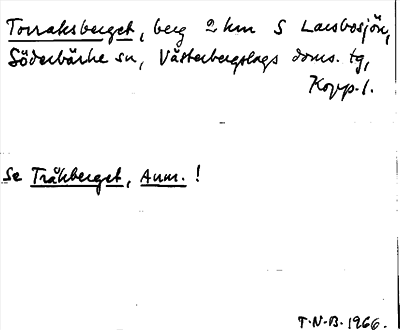 Torraksberget, berg 2 km S Larsbosjön,
Söderbärke sn, Västerbergslags doms. tg,
Kopp. l.
Se Tråkberget, Anm. !
T.N.B. 1966.